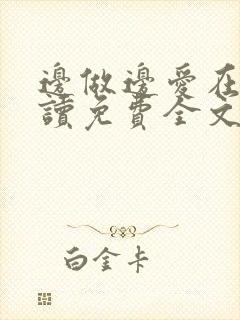 邊做邊愛在
讀免費全文
白金卡